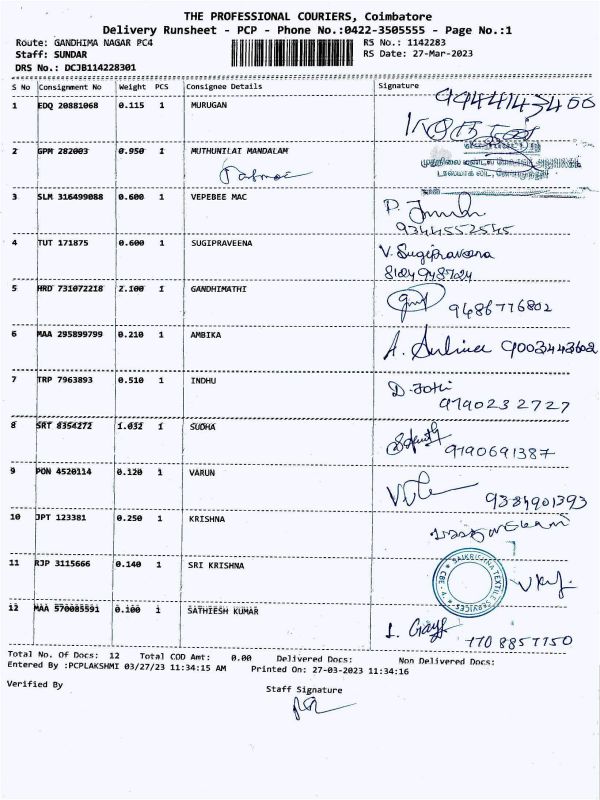 THE PROFESSIONAL COURIERS, Coimbatore
Delivery Runsheet - PCP - Phone No.:0422-3505555 - Page No.:1
Route: GANDHIMA NAGAR PC4 RS No.: 1142283
Staff: SUNDAR RS Date: 27-Mar-2023
DRS No.: DCJB114228301
S No Consignment No Weight PCS Consignee Details Signature
1 EDQ 20881068 0.115 1 MURUGAN
2 GPM 282003 0.950 1 MUTHUNILAI MANDALAM
3 SLM 316499088 0.600 1 VEPEBEE MAC
9344552545
4 TUT 171875 0.600 1 SUGIPRAVEENA V. Sugipraveena
8124948724
5 HRD 731072218 2.100 1 GANDHIMATHI
9486776802
6 MAA 295899799 0.210 1 AMBIKA
7 TRP 7963893 0.510 1 INDHU D. Joti
9790232727
8 SRT 8354272 1.032 1 SUDHA
9790691387
9 PON 4520114 0.120 1 VARUN
9384901393
10 JPT 123381 0.250 1 KRISHNA
11 RJP 3115666 0.140 1 SRI KRISHNA
12 MAA 570085591 0.100 1 SATHIESH KUMAR
7708857750
Total No. Of Docs: 12 Total COD Amt: 0.00 Delivered Docs: Non Delivered Docs:
Entered By :PCPLAKSHMI 03/27/23 11:34:15 AM Printed On: 27-03-2023 11:34:16
Verified By Staff Signature